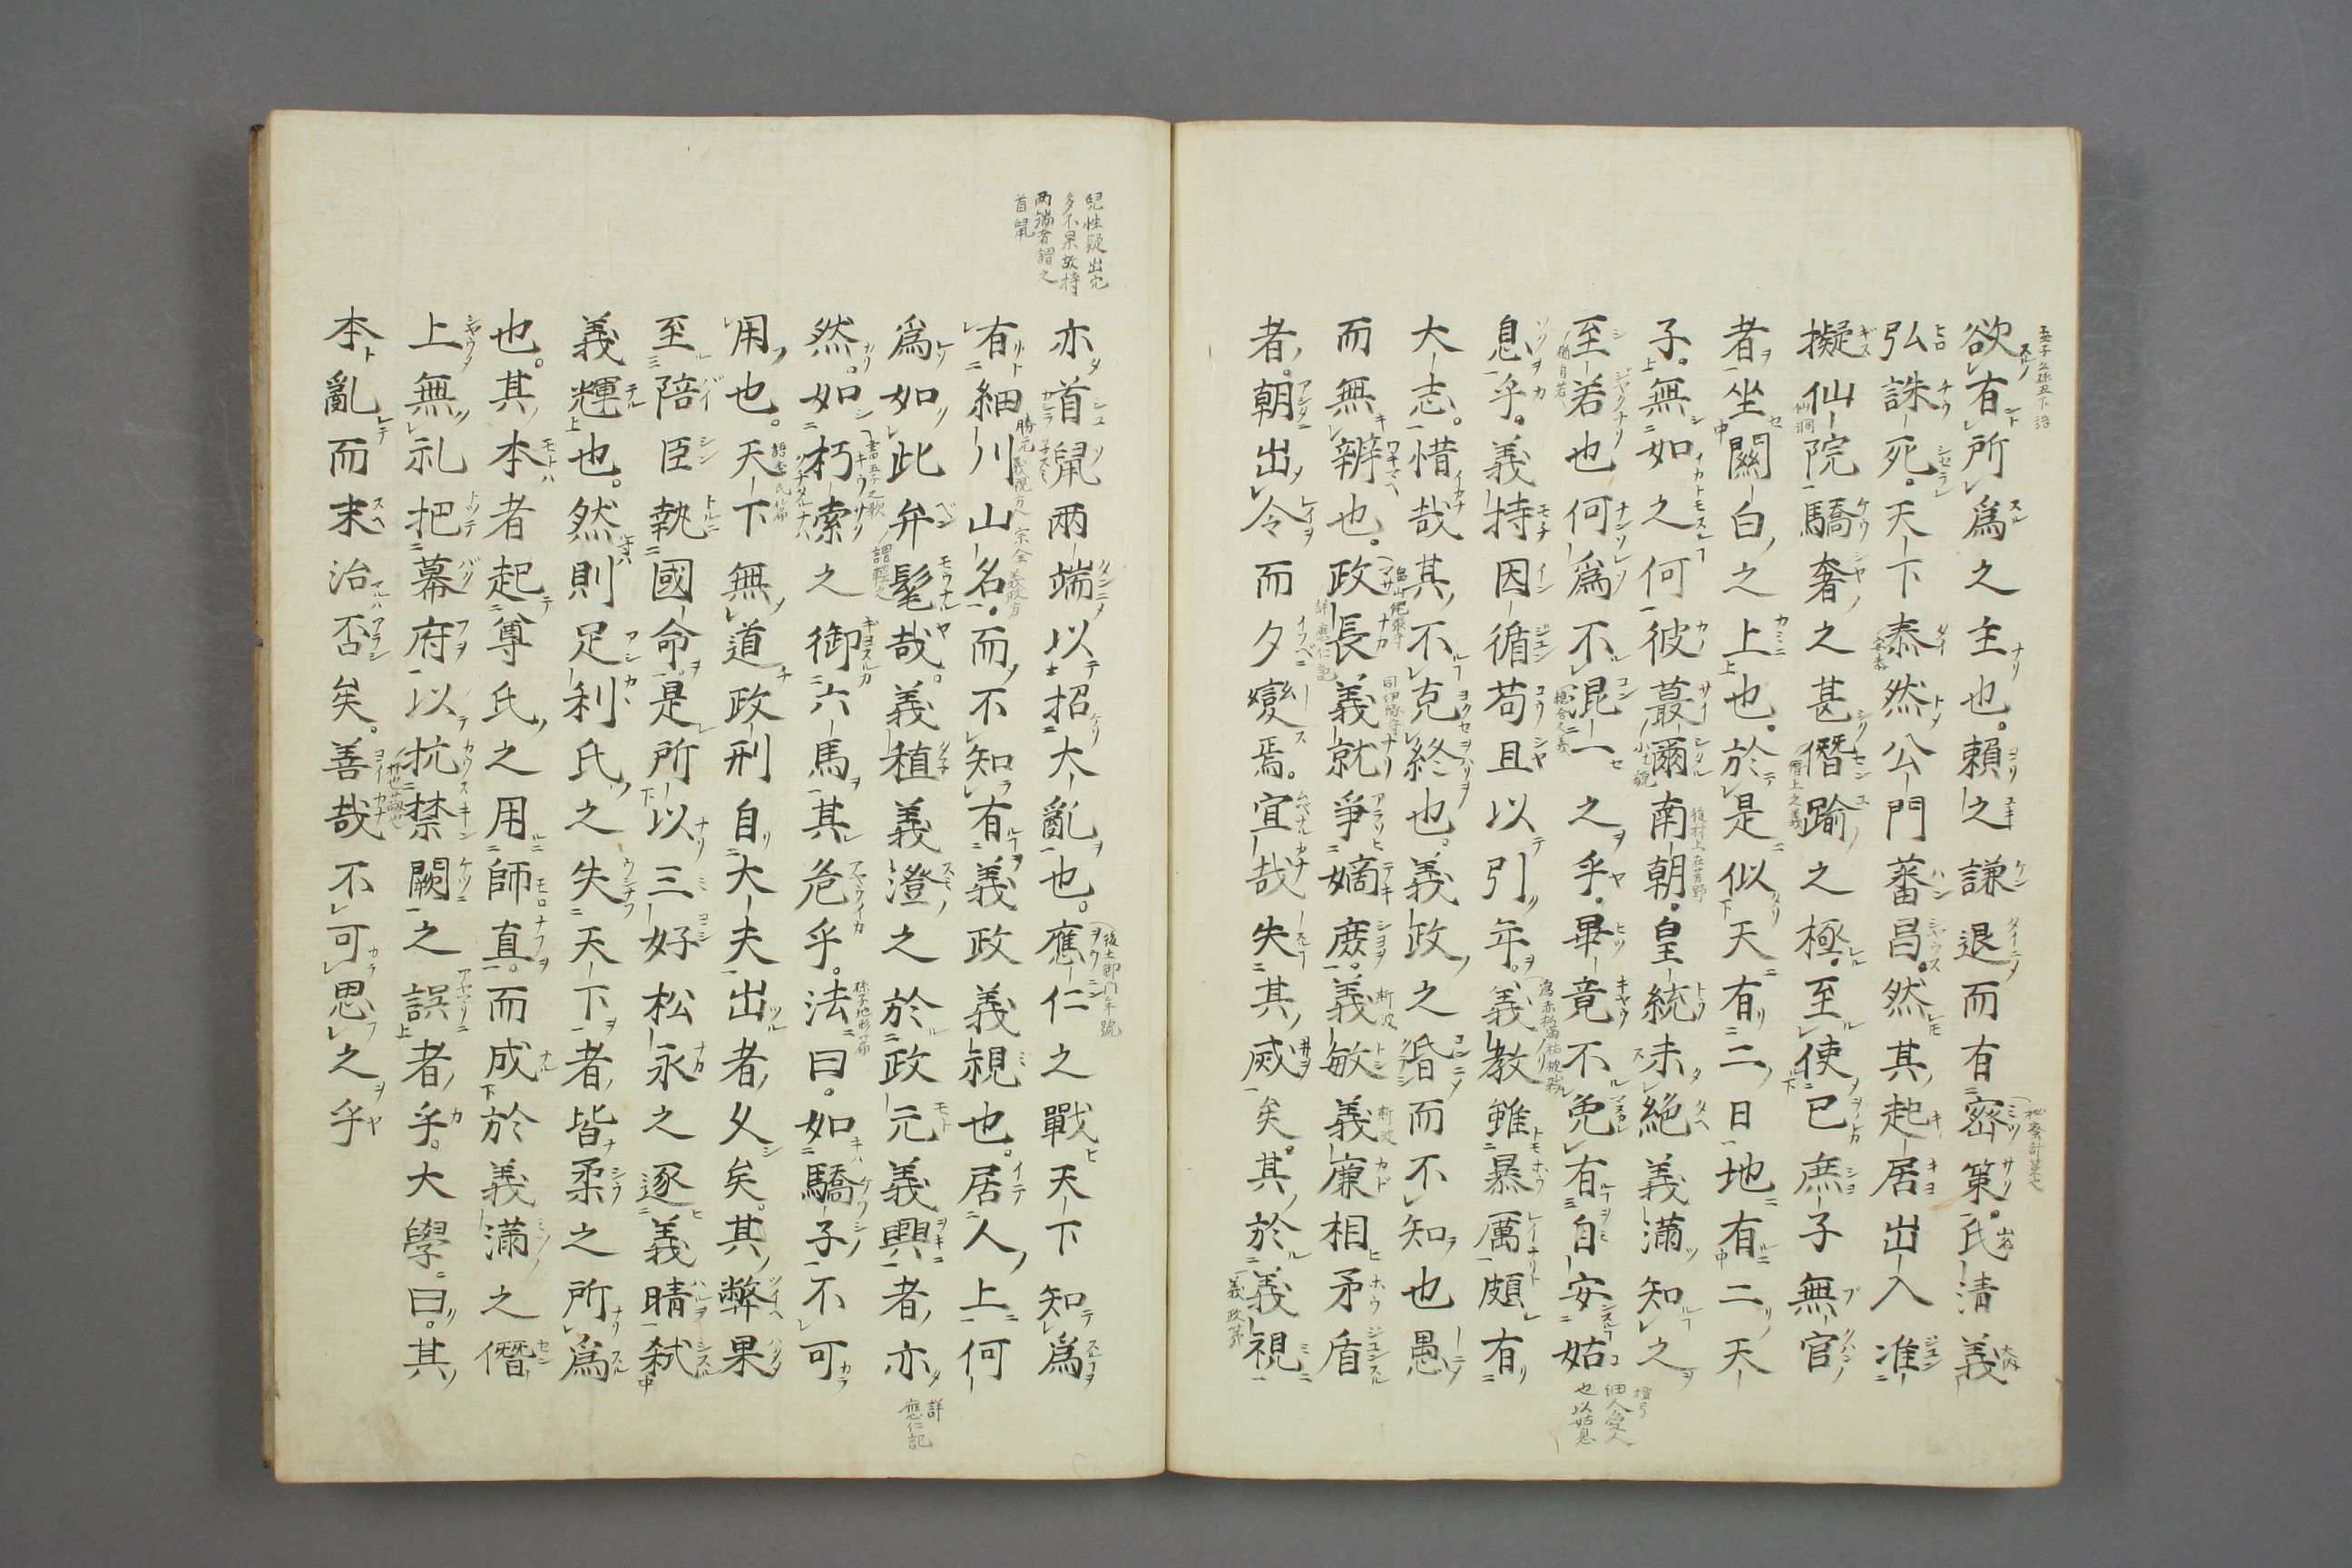 欲有所爲之主也。頼之謙退而有密策。氏清義
弘誅死。天下泰然公門蕃昌。然其起居出入准
擬仙院驕奢之甚僭踰之極。至使已庶子無官
者坐關白之上也。於是似天有二日地有二天
子。無如之何彼蕞爾南朝。皇統未絶義滿知之
至若也何爲不混一之乎。畢竟不免有自安姑
息乎。義持因循苟且以引年。義教雖暴厲頗有
大志。惜哉其不克終也。義政之昏而不知也愚
而無辨也。政長義就爭嫡庶。義敏義廉相矛盾
者。朝出令而夕變焉。宜哉失其威矣。其於義視
亦首鼠兩端以招大亂也。應仁之戰天下知爲
有細川山名。而不知有義政義視也。居人上何
爲如此弁髦哉。義稙義澄之於政元義興者亦
然。如朽索之御六馬其危乎。法曰。如驕子不可
用也。天下無道政刑自大夫出者久矣。其弊果
至陪臣執國命。是所以三好松永之逐義晴弑
義輝也。然則足利氏之失天下者皆柔之所爲
也。其本者起尊氏之用師直。而成於義滿之僭
上無礼把幕府以抗禁闕之誤者乎。大學曰。其
本亂而末治否矣。善哉不可思之乎
孟子公孫丑下
仙洞
僭上之義
小貌
後村上在芳野
檀弓
細人愛人
也以姑息
斯波
斯波
詳應仁記
義政弟
兒性疑出穴
多不果故持
両端者謂之
首鼠
後土御門年號
勝元
宗全
書五子之歌
孫子地形篇
詳
應仁記